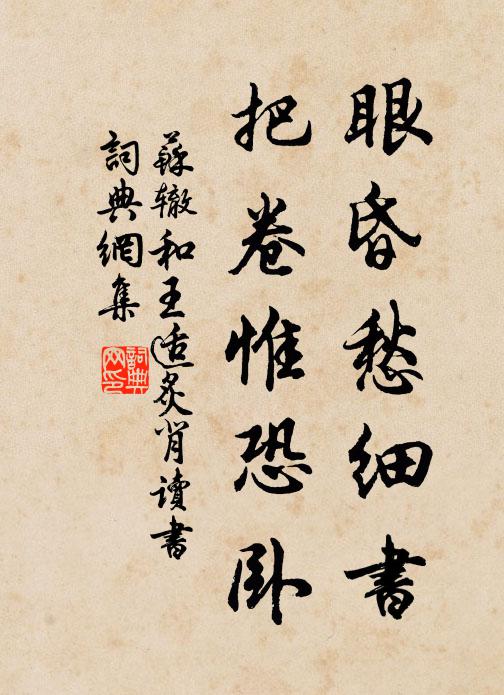 眼昏愁細書
把卷惟恐臥
蘇轍和王适炙背讀書
詞典網集
詞典網印